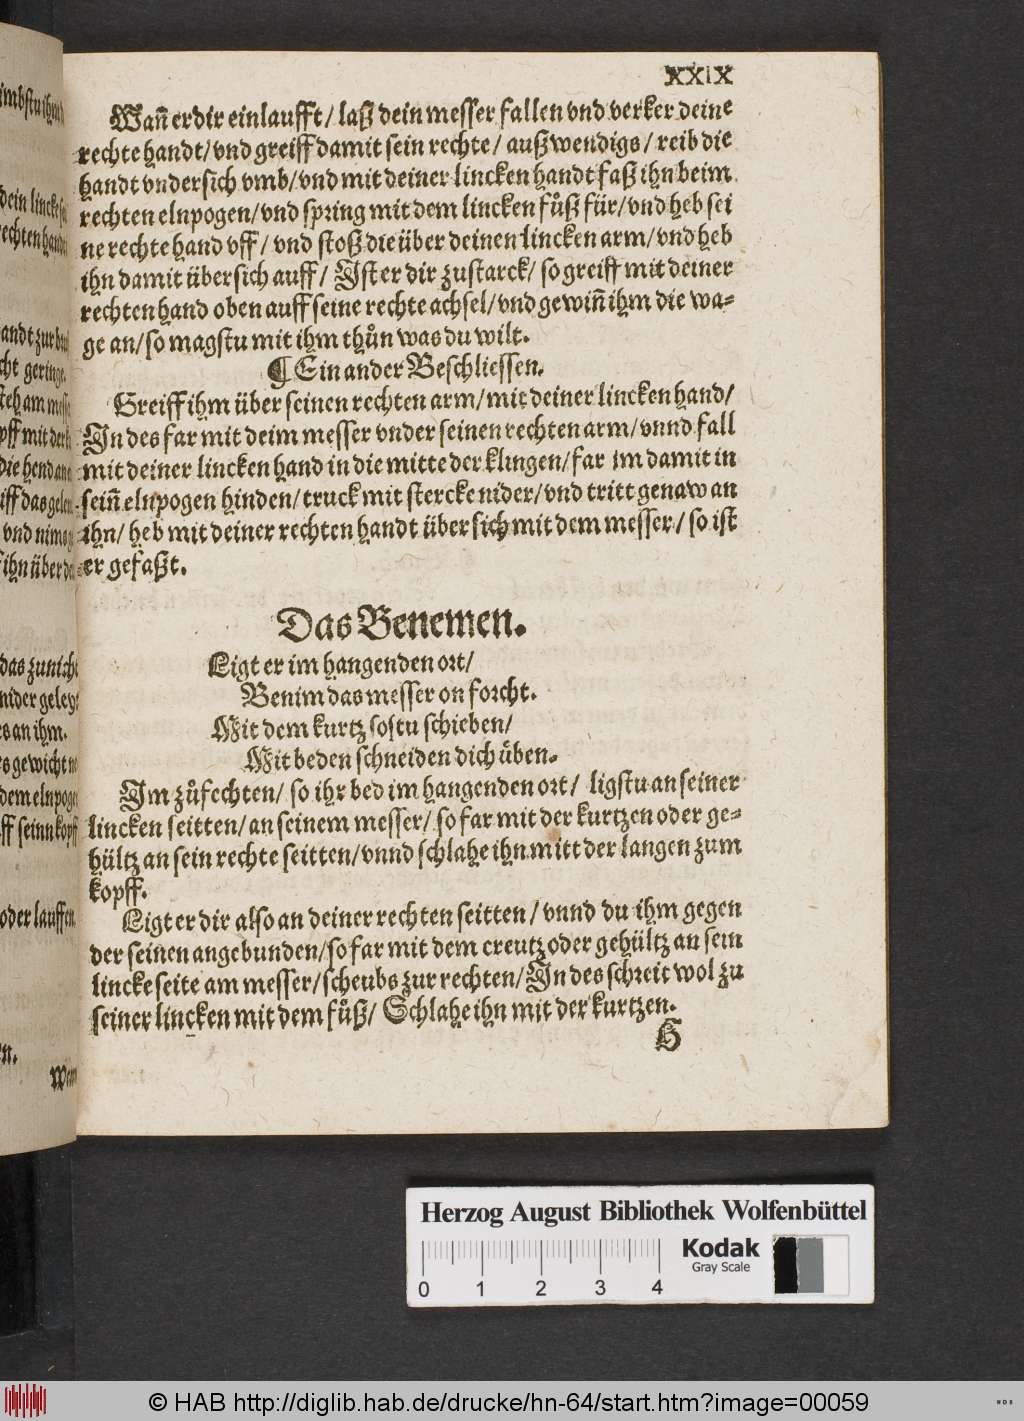 XXIX
Wañ er dir einlaufft / laß dein messer fallen vnd verker deine
rechte handt / vnd greiff damit sein rechte / außwendigs / reib die
handt vndersich vmb / vnd mit deiner lincken handt faß ihn beim
rechten elnpogen / vnd spring mit dem lincken fůß für / vnd heb sei
ne rechte hand vff / vnd stoß die über deinen lincken arm / vnd heb
ihn damit übersich auff / Ist er dir zustarck / so greiff mit deiner
rechten hand oben auff seine rechte achsel / vnd gewiñ ihm die wa-
ge an / so magstu mit ihm thůn was du wilt.
¶ Ein ander Beschliessen.
Greiff ihm über seinen rechten arm / mit deiner lincken hand /
In des far mit deim messer vnder seinen rechten arm / vnnd fall
mit deiner lincken hand in die mitte der klingen / far im damit in
seiñ elnpogen hinden / truck mit stercke nider / vnd tritt genaw an
ihn / heb mit deiner rechten handt übersich mit dem messer / so ist
er gefaßt.
Das Benemen.
Ligt er im hangenden ort /
Benim das messer on forcht.
Mit dem kurtz soltu schieben /
Mit beden schneiden dich üben.
Im zůfechten / so ihr bed im hangenden ort / ligstu an seiner
lincken seitten / an seinem messer / so far mit der kurtzen oder ge-
hültz an sein rechte seitten / vnnd schlahe ihn mitt der langen zum
kopff.
Ligt er dir also an deiner rechten seitten / vnnd du ihm gegen
der seinen angebunden / so far mit dem creutz oder gehültz an sein
lincke seite am messer / scheubs zur rechten / In des schreit wol zu
seiner lincken mit dem fůß / Schlahe ihn mit der kurtzen.
H
Herzog August Bibliothek Wolfenbüttel
Kodak
Gray Scale
0 1 2 3 4
© HAB http://diglib.hab.de/drucke/hn-64/start.htm?image=00059